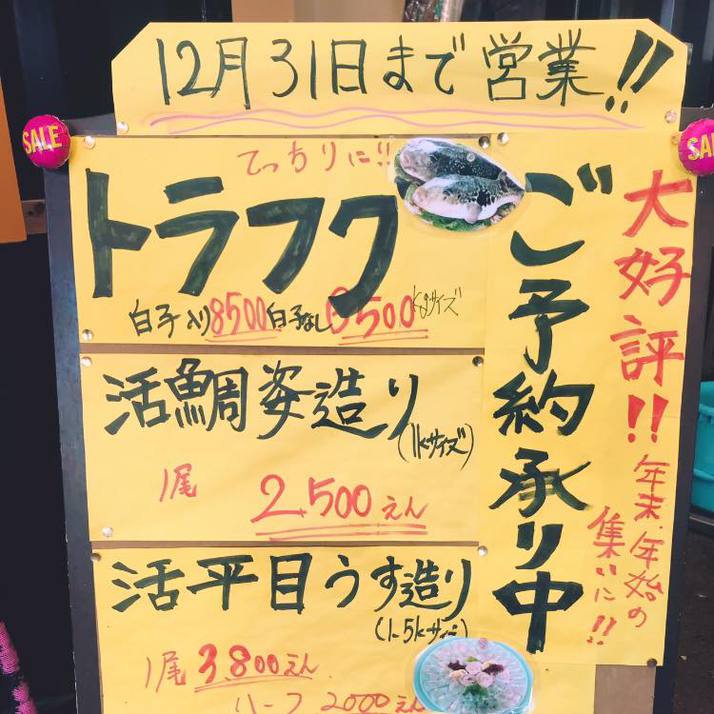 12月31日まで営業!!
SALE
SAL
大好評!!
年末・年始の
集いに!!
ご予約承り中
てっちりに!!
トラフク
白子入り8500 白子なし6500 kgサイズ
活鯛姿造り
(1kサイズ)
1尾 2.500えん
活平目うす造り
(1.5kサイズ)
1尾 3.800えん
ハーフ 2000えん